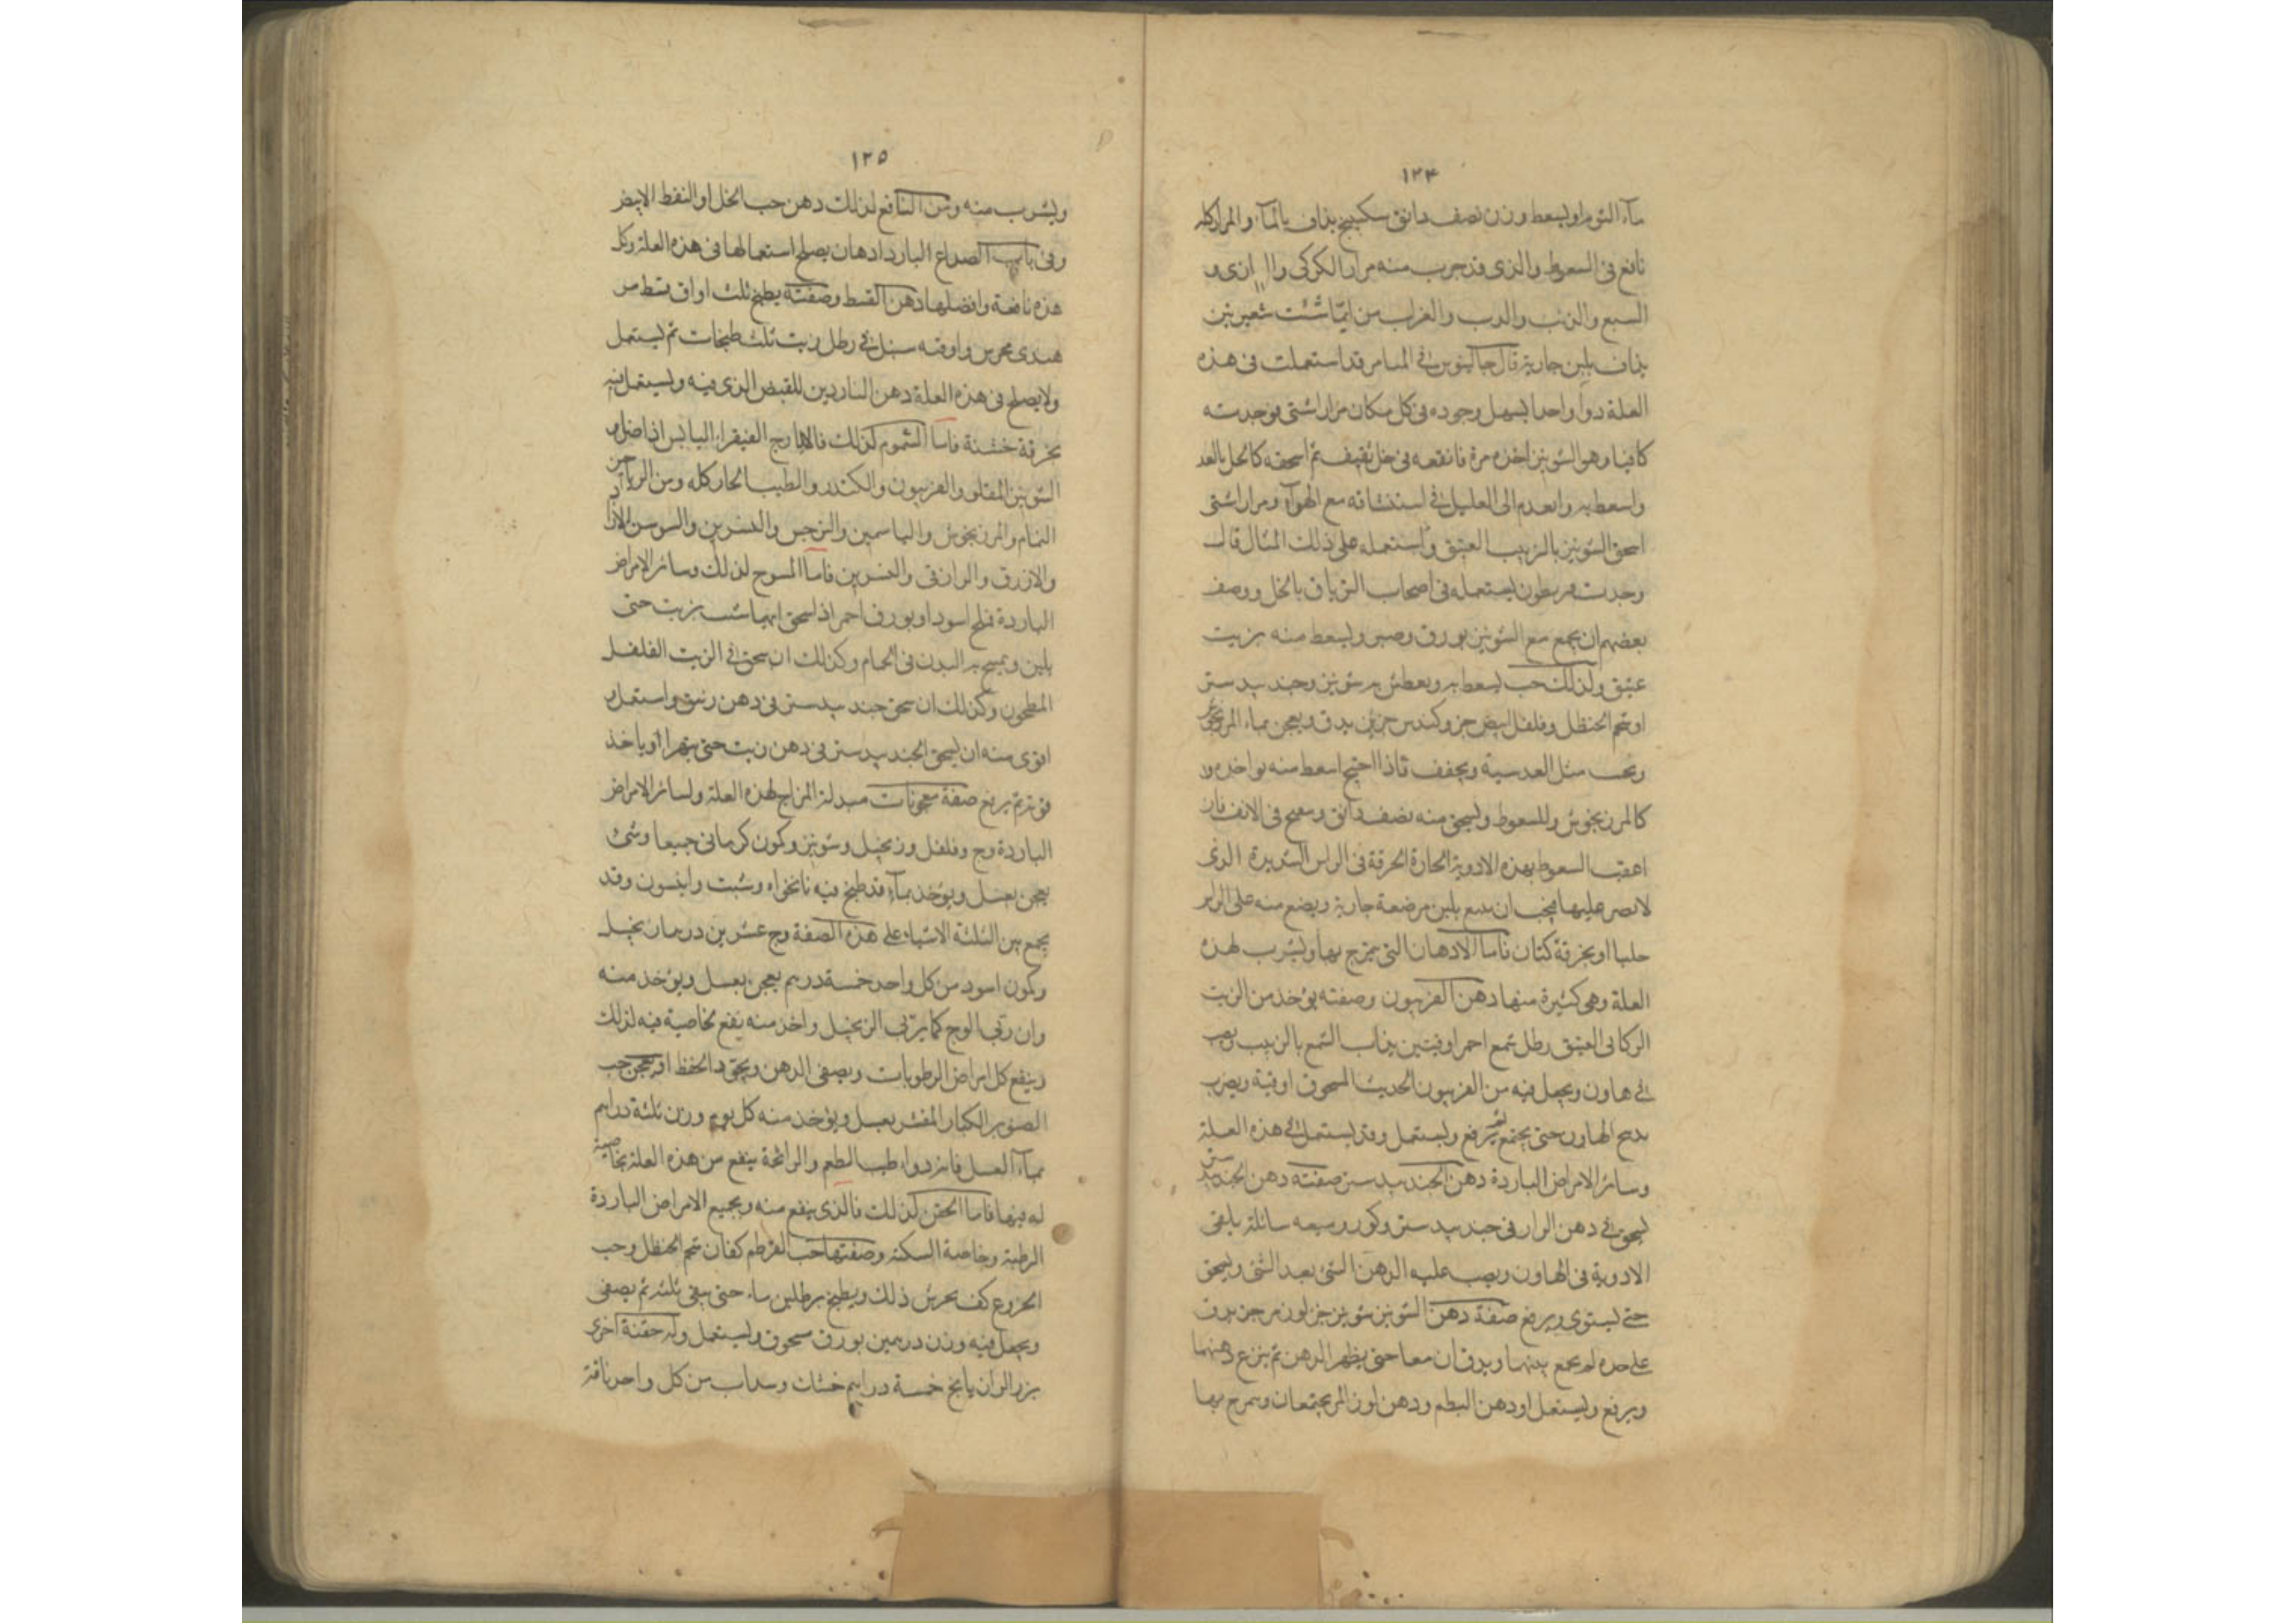 ١٢٤
مآء الشوم او يسعط وزن نصف دانق سكبينج يذاف بالمآء والمرار كله
نافع فى السعوط والذى قد جرب منه مرار الكركى وا ازى و
السبع والذئب والدب والغراب من ايّما شئت شعيرتين
يذاف بلبن جارية قال جالينوس فى الميامر قد استعملت فى هذه
العلة دواء واحدا يسهل وجوده فى كل مكان مرارا شتى فوجدته
كافيا وهو الشونيز اخذه مرة فانقعه فى خل ثقيف ثم اسحقه كالكحل بالغد
واسعط به واتعدم الى العليل فى استنشاقه مع الهوآء ومرارا شتى
اسحق الشونيز بالزيت العتيق واستعمله على ذلك المثال قال
وجدت يستعمله فى اصحاب بالخل ووصف
بعضهم ان يجمع مع الشونيز بورق وصبر ويسعط منه بزيت
عتيق ولذلك حب يسعط به ويعطس به شونيز وجند بيدستر
او شحم الحنظل وفلفل ابيض جزو كندس جزئين يدق ويعجن بماء المرزنجوش
ويحبب مثل العدسية ويجفف فاذا احتيج اسعط منه بواحدة
كالمرزنجوش وللسعوط ويسحق منه نصف دانق وسعج فى الانف فان
اعقب السعوط بهذه الادوية الحارة الحرقة فى الراس الشديدة الذى
لا تصبر عليها فيجب ان يتبع بلبن مرضعة جارية ويضع منه على الراس
حلبا او بخرقة كتان فاما الادهان التى يمزج بها ويشرب لهذه
العلة وهى كثيرة منها دهن الفربيون وصفته يؤخذ من الزيت
الركابى العتيق رطل شمع احمر اوقيتين يذاب الشمع بالزيت ويصب
فى هاون ويجعل فيه من الفربيون الحديث المسحوق اوقية ويضرب
بدسج الهاون حتى يجتمع ثم يرفع ويستعمل وقد يستعمل فى هذه العلة
وسائر الامراض الباردة دهن الجند بيدستر صفته دهن الجندبيدستر
يسحق فى دهن الرازقى جند بيدستر وكور وميعه سائلة يلقى
الادوية فى الهاون ويصب عليه الدهن الشئ بعد الشئ ويسحق
حتى يستوى ويرفع صفة دهن الشونيز شونيز جز لوز مر جز يدق
على حده ثم يجمع بينهما ويدقان معا حتى يظهر الدهن ثم ينزع دهنهما
ويرفع ويستعمل او دهن البطم ودهن لوز المر يجتمعان ويمرخ بها
١٢٥
ويشرب منه ومن النافع لذلك دهن حب الخل او النفط الابيض
وفى باب الصداع البارد ادهان يصلح استعمالها فى هذه العلة وكل
هذه نافعة وافضلها دهن القسط وصفته يطبخ ثلث اواق قسط مر
هندى مجرس واوقيه سنبل فى رطل زيت ثلث طبخات ثم يستعمل
ولا يصلح فى هذه العلة دهن الناردين للقبض الذى فيه ويستعمل فيه
بخرقة خشنة فاما الشموم لذلك فالايارج الفيقرا اليابس اذا ضل
الشونيز المقلو والفربيون والكندر والطيب الحار كله ومن الرياحين
النمام والمرزنجوش والياسمين والنرجس والنسرين والسوسن الازاد
والازرق والرازقى والنسرين فاما المسوح لذلك وسائر الامراض
الباردة فملح اسود او بورق احمر اذ يسحق ايهما شئت بزيت حتى
يلين ويمسح به البدن فى الحمام وكذلك ان سحق فى الزيت الفلفل
المطحون وكذلك ان سحق جند بيدستر فى دهن زنبق واستعمل
اقوى منه ان يسحق الجند بيدستر فى دهن زيت حتى يتهرا او ياخذ
قوته ثم يرفع صفة معجونات مبدلة المزاج لهذه العلة ولسائر الامراض
الباردة وج وفلفل وزنجبيل وشونيز وكمون كرمانى جميعا وشئ
يعجن بعسل ويؤخذ بمآء قد طبخ فيه نانخواه وشبت وانيسون وقد
يجمع بين الثلثة الاشياء على هذه الصفة وج عشرين درهما زنجبيل
وكمون اسود من كل واحد خمسة درهم يعجن بعسل ويؤخذ منه
وان ربى الوج كما يربى الزنجبيل واخذ منه ينفع بخاصية فيه لذلك
وينفع كل امراض الرطوبات ويصفى الذهن ويجود الحفظ او يعجن حب
الصنوبر الكبار المقشر بعسل ويؤخذ منه كل يوم وزن ثلثة دراهم
بمآء العسل فانه دواء طيب الطعم والرائحة ينفع من هذه العلة بخاصية
له فيها فاما الحقن لذلك فالذى ينفع منه وجميع الامراض الباردة
الرطبة وخاصة السكتة وصفتها حب القرطم كفان شحم الحنظل وحب
الخروع كف يجرش ذلك ويطبخ برطلين ماء حتى يبقى ثلثه ثم يصفى
ويجعل فيه وزن درهمين بورق مسحوق ويستعمل وله حقنة اخرى
بزر الرازيانج خمسة دراهم خشاث وسداب من كل واحد باقة